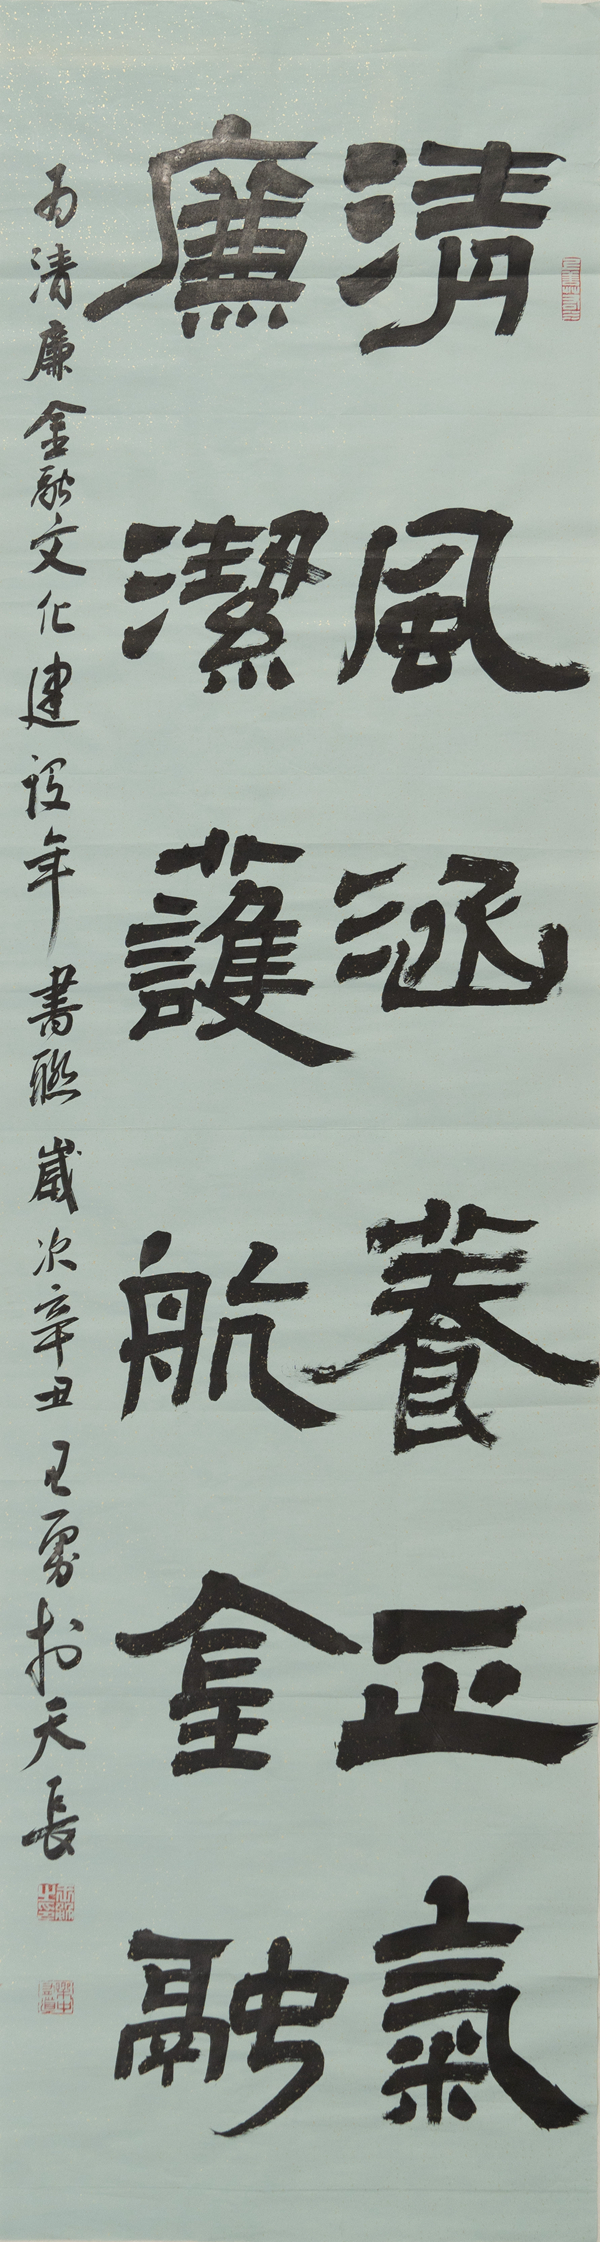 清風涵養正氣
廉潔護航金融
为清廉金融文化建设年書聯歲次辛丑王勇於天長